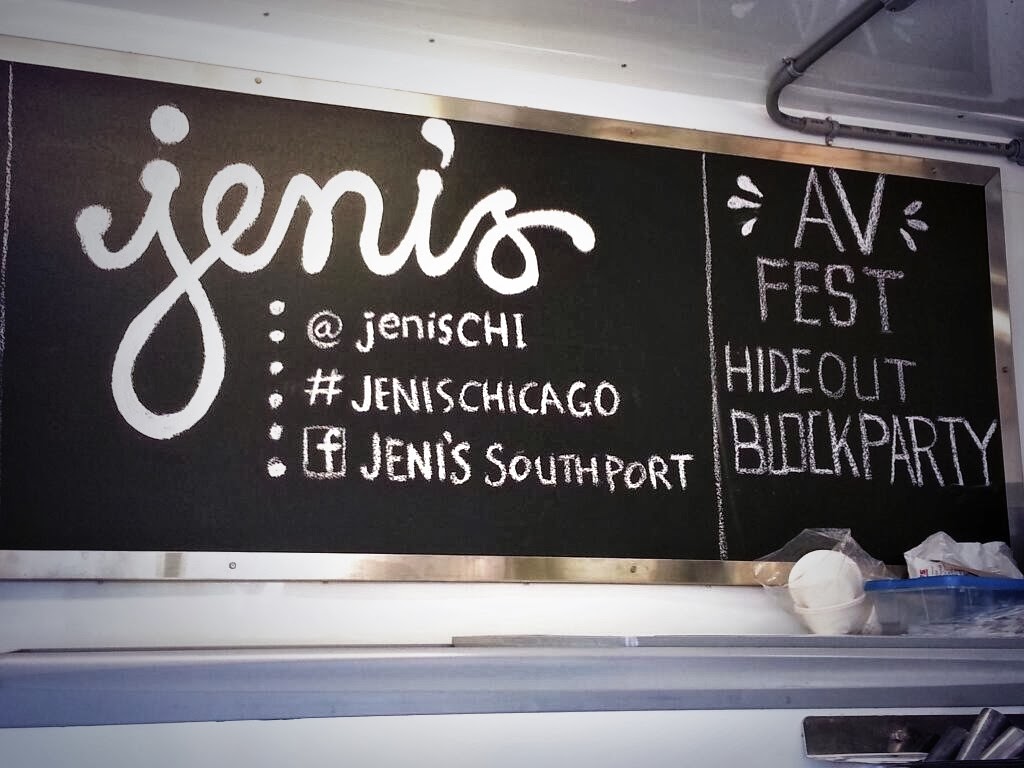 jeni's
@jenisCHI
#JENISCHICAGO
f JENI'S SOUTHPORT
AV
FEST
HIDEOUT
BLOCKPARTY